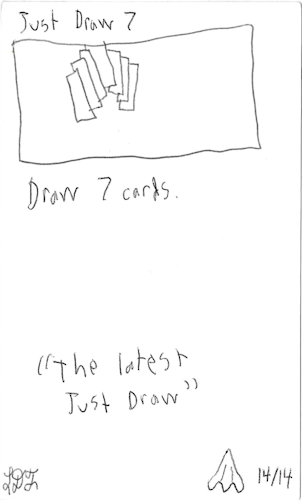 Just Draw 7
Draw 7 cards.
"The latest
Just Draw"
14/14